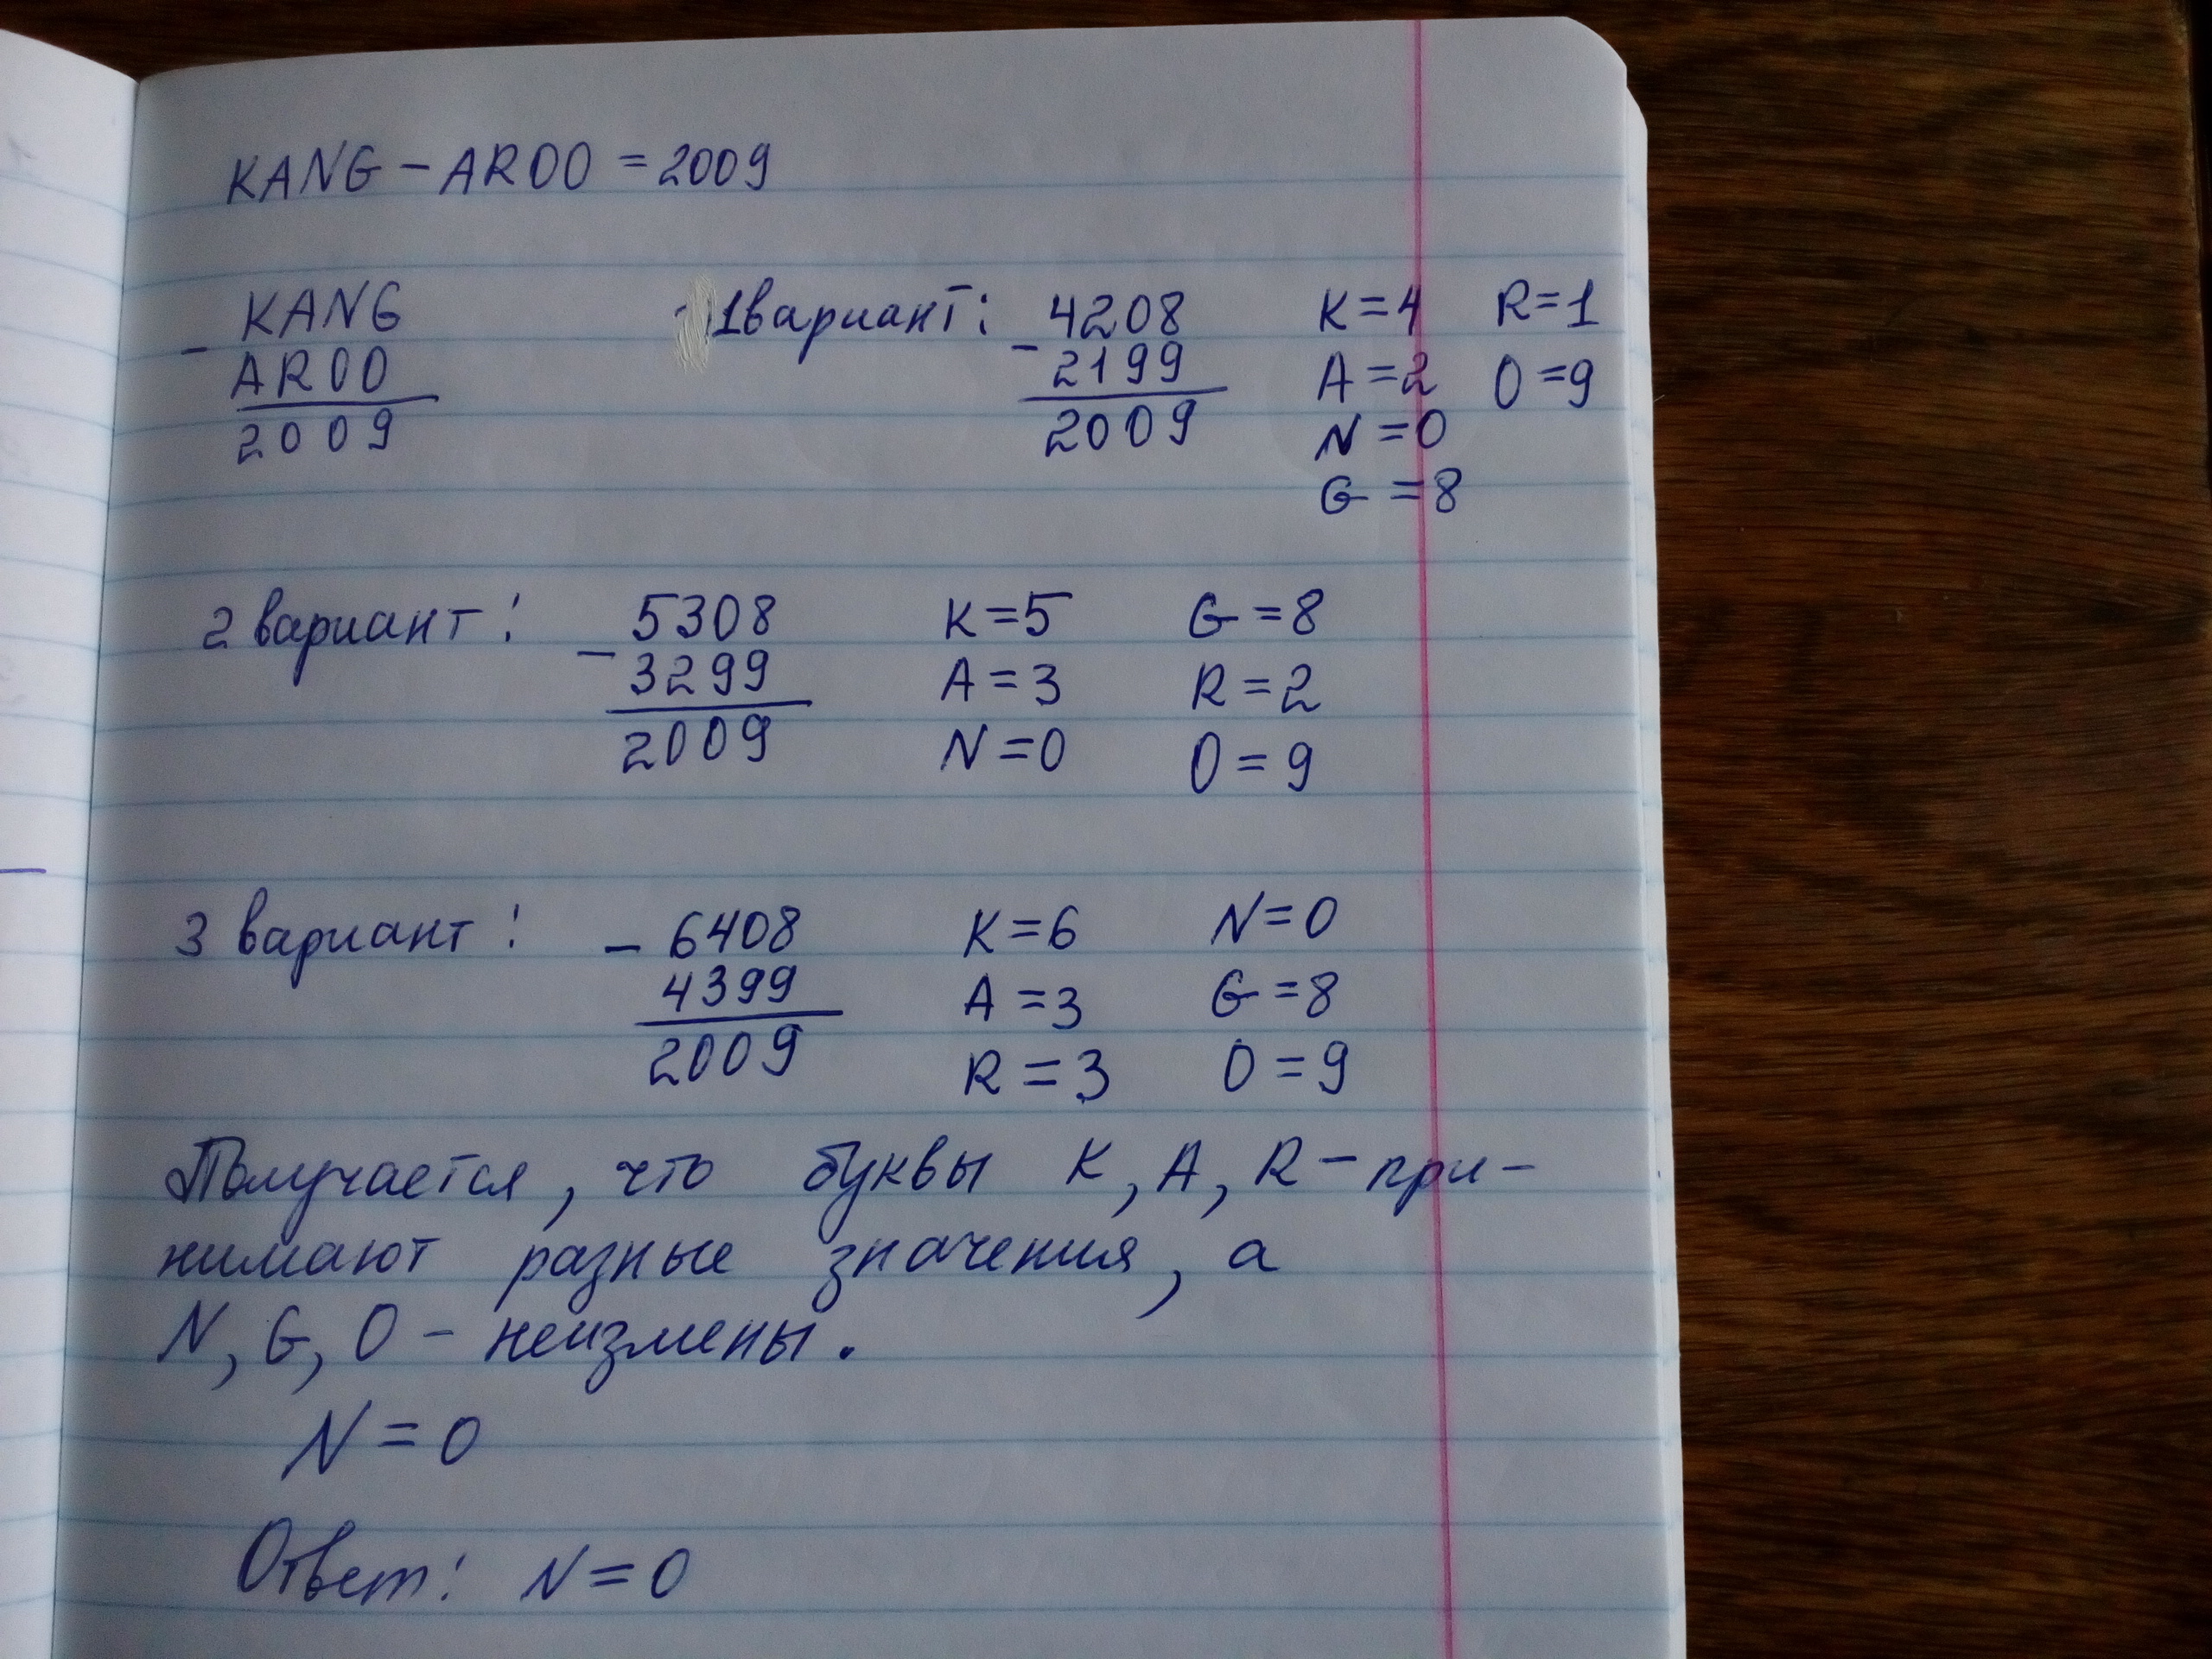 KANG - AROO = 2009
- KANG
AROO
2009
1 вариант:
- 4208
2199
2009
K=4 R=1
A=2 O=9
N=0
G=8
2 вариант:
- 5308
3299
2009
K=5 G=8
A=3 R=2
N=0 O=9
3 вариант:
- 6408
4399
2009
K=6 N=0
A=3 G=8
R=3 O=9
Получается, что буквы K, A, R - при-
нимают разные значения, а
N, G, O - неизмены.
N=0
Ответ: N=0